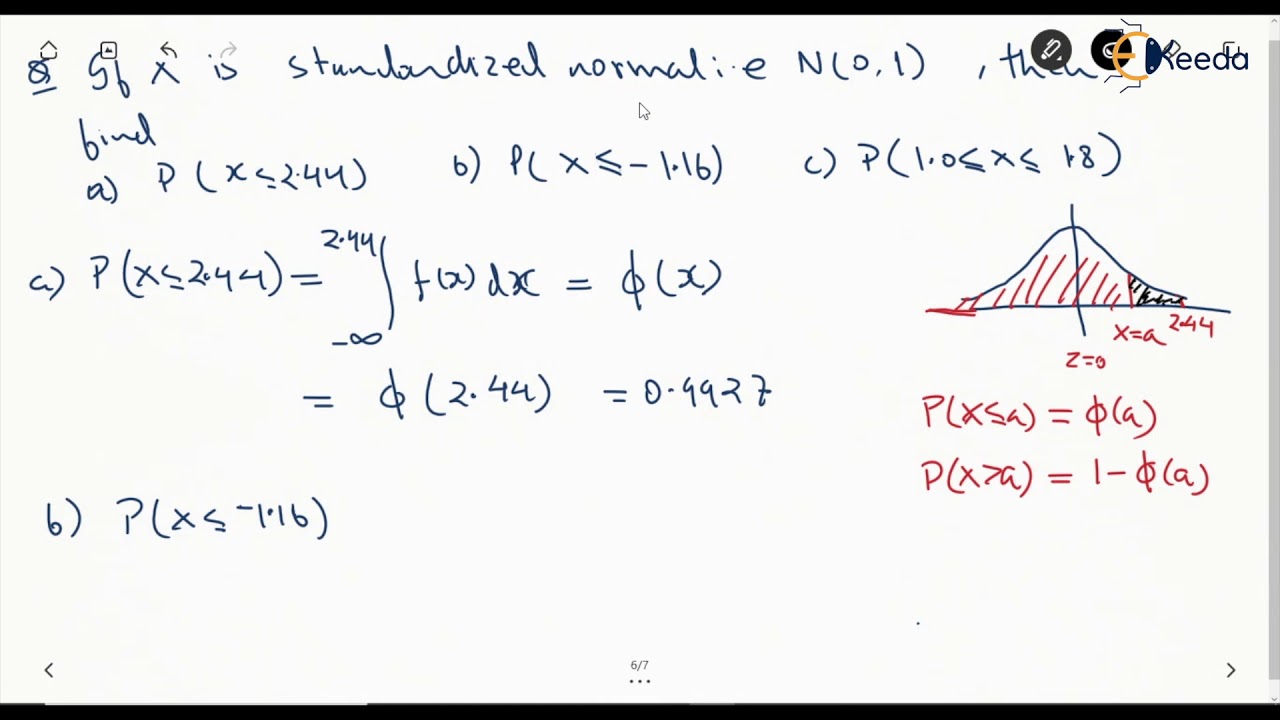 Q If X is standardized normal i.e N(0,1), then
find
a) P(x≤2.44) b) P(x≤-1.16) c) P(1.0≤x≤1.8)
a) P(x≤2.44) = ∫_{-∞}^{2.44} f(x)dx = ϕ(x)
= ϕ(2.44) = 0.9927
b) P(x≤-1.16)
x=a 2.44
z=0
P(x≤a) = ϕ(a)
P(x>a) = 1-ϕ(a)
Keeda
6/7